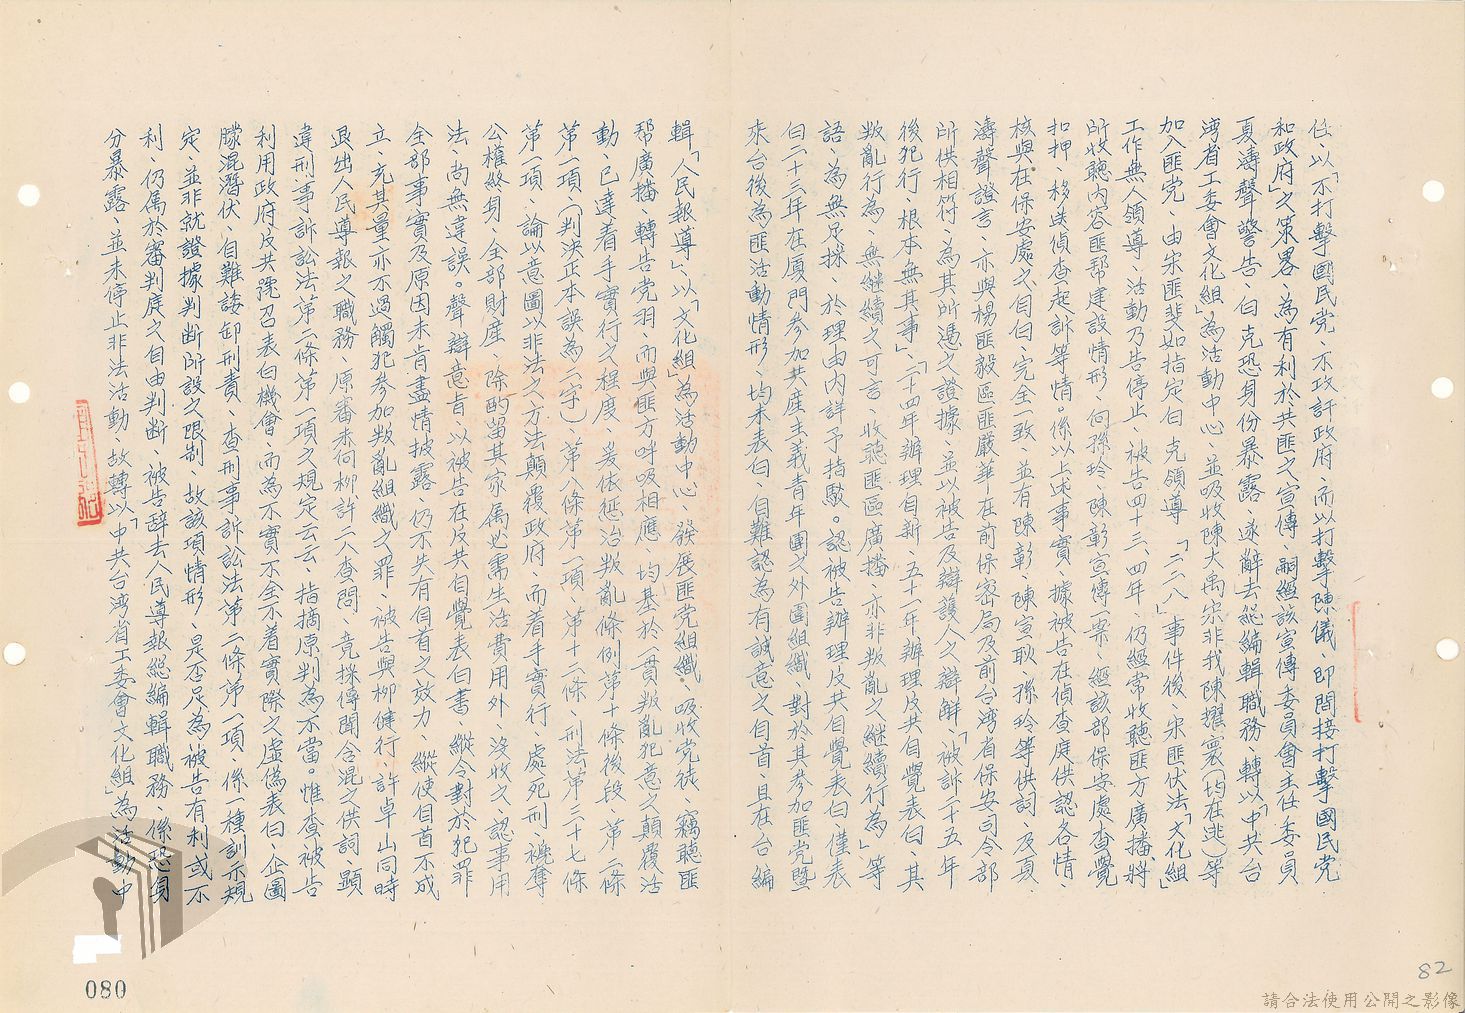 任、以「不打擊國民党、不攻訐政府、而以打擊陳儀、即間接打擊國民党
和政府」之策畧、為有利於共匪之宣傳、嗣經該宣傳委員會主任委員
夏濤聲警告、白克恐身份暴露、遂辭去総編輯職務、轉以「中共台
湾省工委會文化組」為活動中心、並吸收陳大禹宋非我陳耀寰(均在逃)等
加入匪党、由宋匪斐如指定白克領導「二二八」事件後、宋匪伏法「文化組」
工作無人領導、活動乃告停止、被告四十三、四年、仍經常收聽匪方廣播、將
所收聽內容匪帮建設情形、向孫玲、陳彰宣傳一案、經該部保安處查覺
扣押、移送偵查起訴等情。係以上述事實、據被告在偵查庭供認各情、
核與在保安處之自白、完全一致、並有陳彰、陳宣耿、孫玲等供詞、及夏
濤聲證言、亦與楊匪毅區匪嚴華在前保密局及前台湾省保安司令部
所供相符、為其所憑之證據、並以被告及辯護人之辯解、「被訴二十五年
後犯行、根本無其事」、「二十四年辦理自新、五十一年辦理反共自覺表白、其
叛亂行為、無継續之可言、收聽匪區廣播、亦非叛亂之継續行為」等
語、為無足採、於理由內詳予指駁。認被告辦理反共自覺表白僅表
白二十三年在厦門參加共產主義青年團之外圍組織、對於其參加匪党暨
來台後為匪活動情形、均未表白、自難認為有誠意之自首、且在台編
輯「人民報導」、以「文化組」為活動中心、發展匪党組織、吸收党徒、竊聽匪
帮廣播、轉告党羽、而與匪方呼吸相應、均基於一貫叛亂犯意之顛覆活
動、已達着手實行之程度、爰依惩治叛亂條例第十條後段、第二條
第一項、(判决正本誤為二字)、第八條第一項、第十二條、刑法第三十七條
第一項、論以意圖以非法之方法顛覆政府、而着手實行、處死刑、褫奪
公權終身、全部財產、除酌留其家属必需生活費用外、沒收之、認事用
法、尚無違誤。聲辯意旨、以被告在反共自覺表白書、縱令對於犯罪
全部事實及原因未肯盡情披露、仍不失有自首之效力、縱使自首不成
立、充其量亦不過觸犯參加叛亂組織之罪、被告與柳健行、許卓山同時
退出人民導報之職務、原審未向柳許二人查問、竟採傳聞含混之供詞、顕
違刑事訴訟法第二條第一項之規定云云、指摘原判為不當。惟查被告
利用政府反共號召表白機會、而為不實不全不着實際之虛偽表白、企圖
朦混潛伏、自難諉卸刑責、查刑事訴訟法第二條第一項、係一種訓示規
定、並非就證據判断所設之限制、故該項情形、是否足為被告有利或不
利、仍属於審判庭之自由判断、被告辞去人民導報総編輯職務、係恐身
分暴露、並未停止非法活動、故轉以「中共台湾省工委會文化組」為活動中
080
82
請合法使用公開之影像